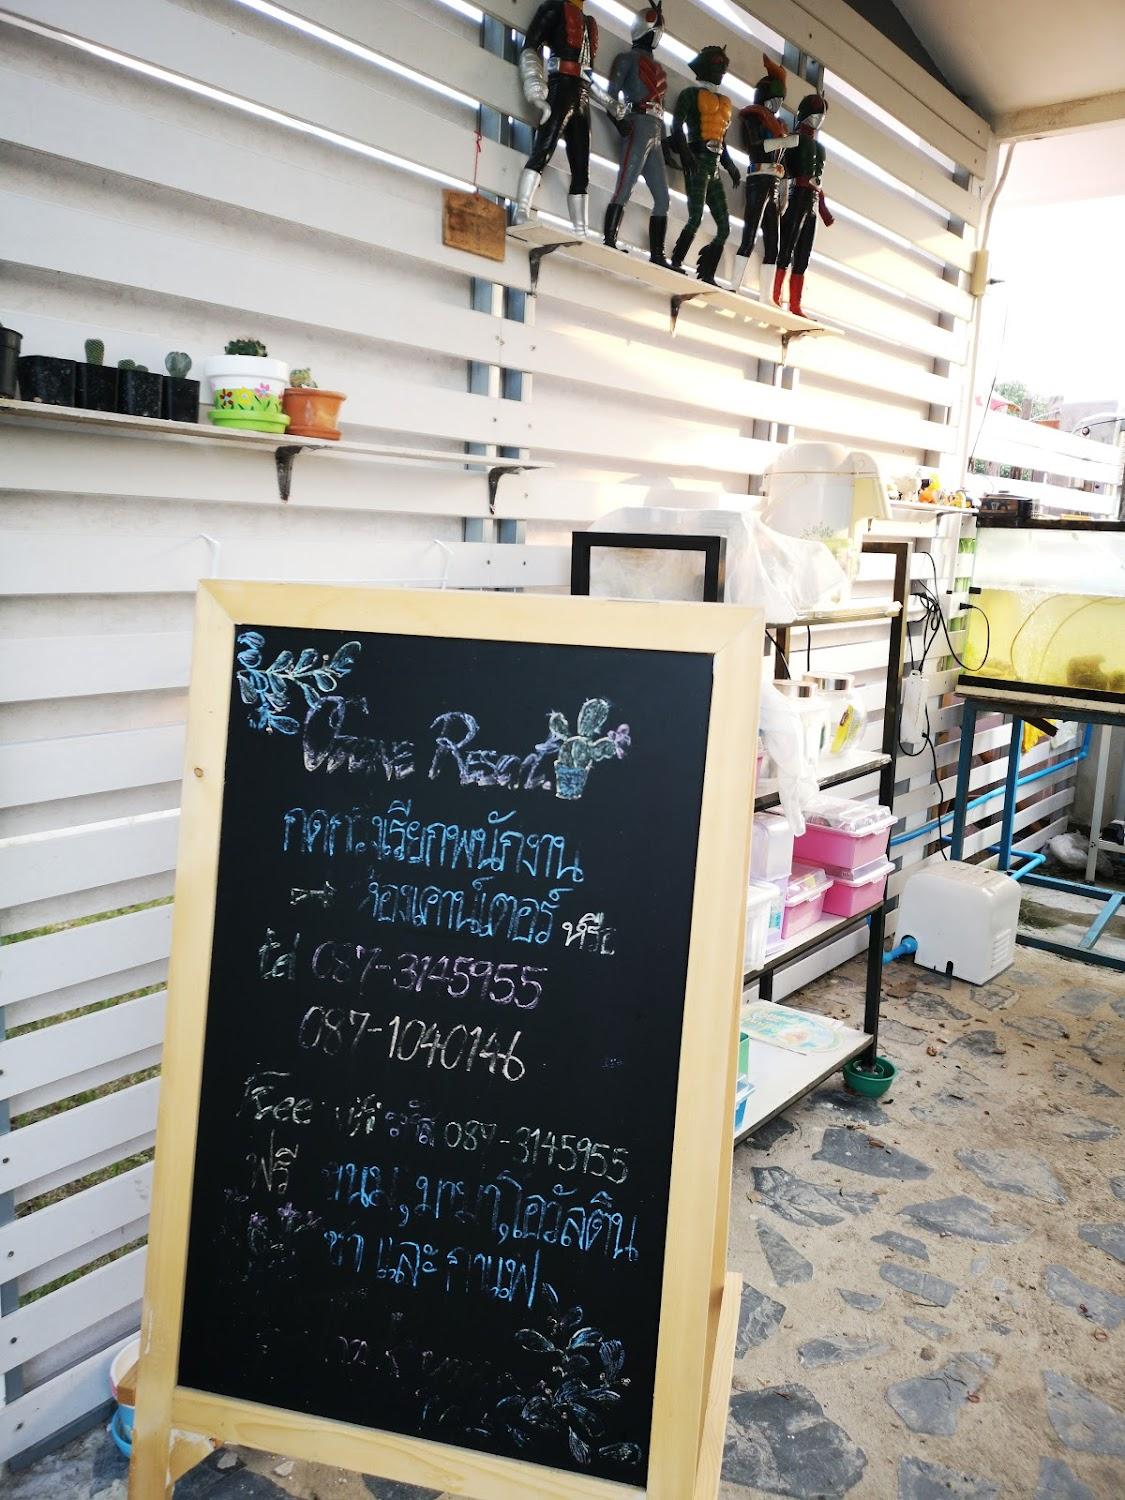 Ozone Resort
กดกระดิ่งเรียกพนักงาน
ห้องเคาน์เตอร์ หรือ
087-3145955
087-1040146
Free รหัส 087-3145955
ฟรี ขนม, มาม่า, โอวัลติน
ชา และ กาแฟ